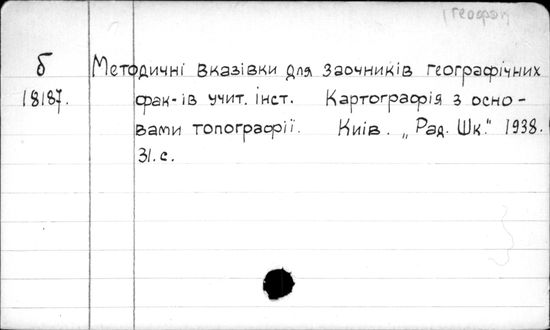 б Методичні вказівки для заочників географічних
18187. фак-ів учит. інст. Картографія з осно-
вами топографії. Київ. „Рад. Шк." 1938.
31.с.